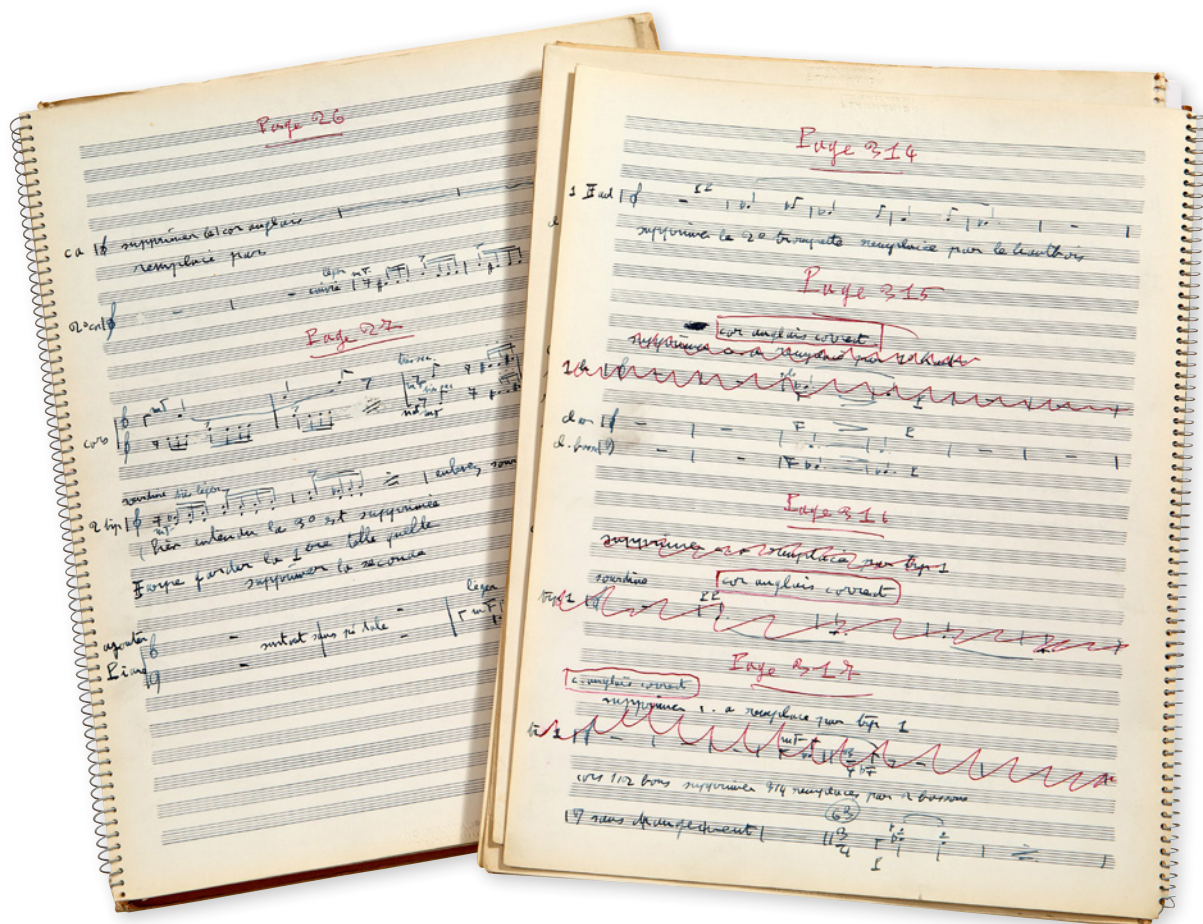 Page 26
c a supprimer le cor anglais
remplacé par
léger
cuivré mf
2º cor
Page 27
cors mf
sourdine très léger
2 trp mf enlevez
Bien entendu la 3º est supprimée
Harpe garder la 1ère telle quelle
supprimer la seconde
ajouter
Piano surtout sans pédale léger
mf
Page 314
1 Haut
supprimer la 2º trompette remplacée par le hautbois
Page 315
cor anglais correct
supprimer c. a remplacé par
cl
cl. bass
Page 316
supprimer c. a remplacé par trp 1
sourdine cor anglais correct
trp 1
Page 317
c. anglais correct
supprimer c. a remplacé par trp 1
mf
cors 1 1/2 bons supprimer 3/4 remplacés par 2 bassons
63
sans changement 3
4